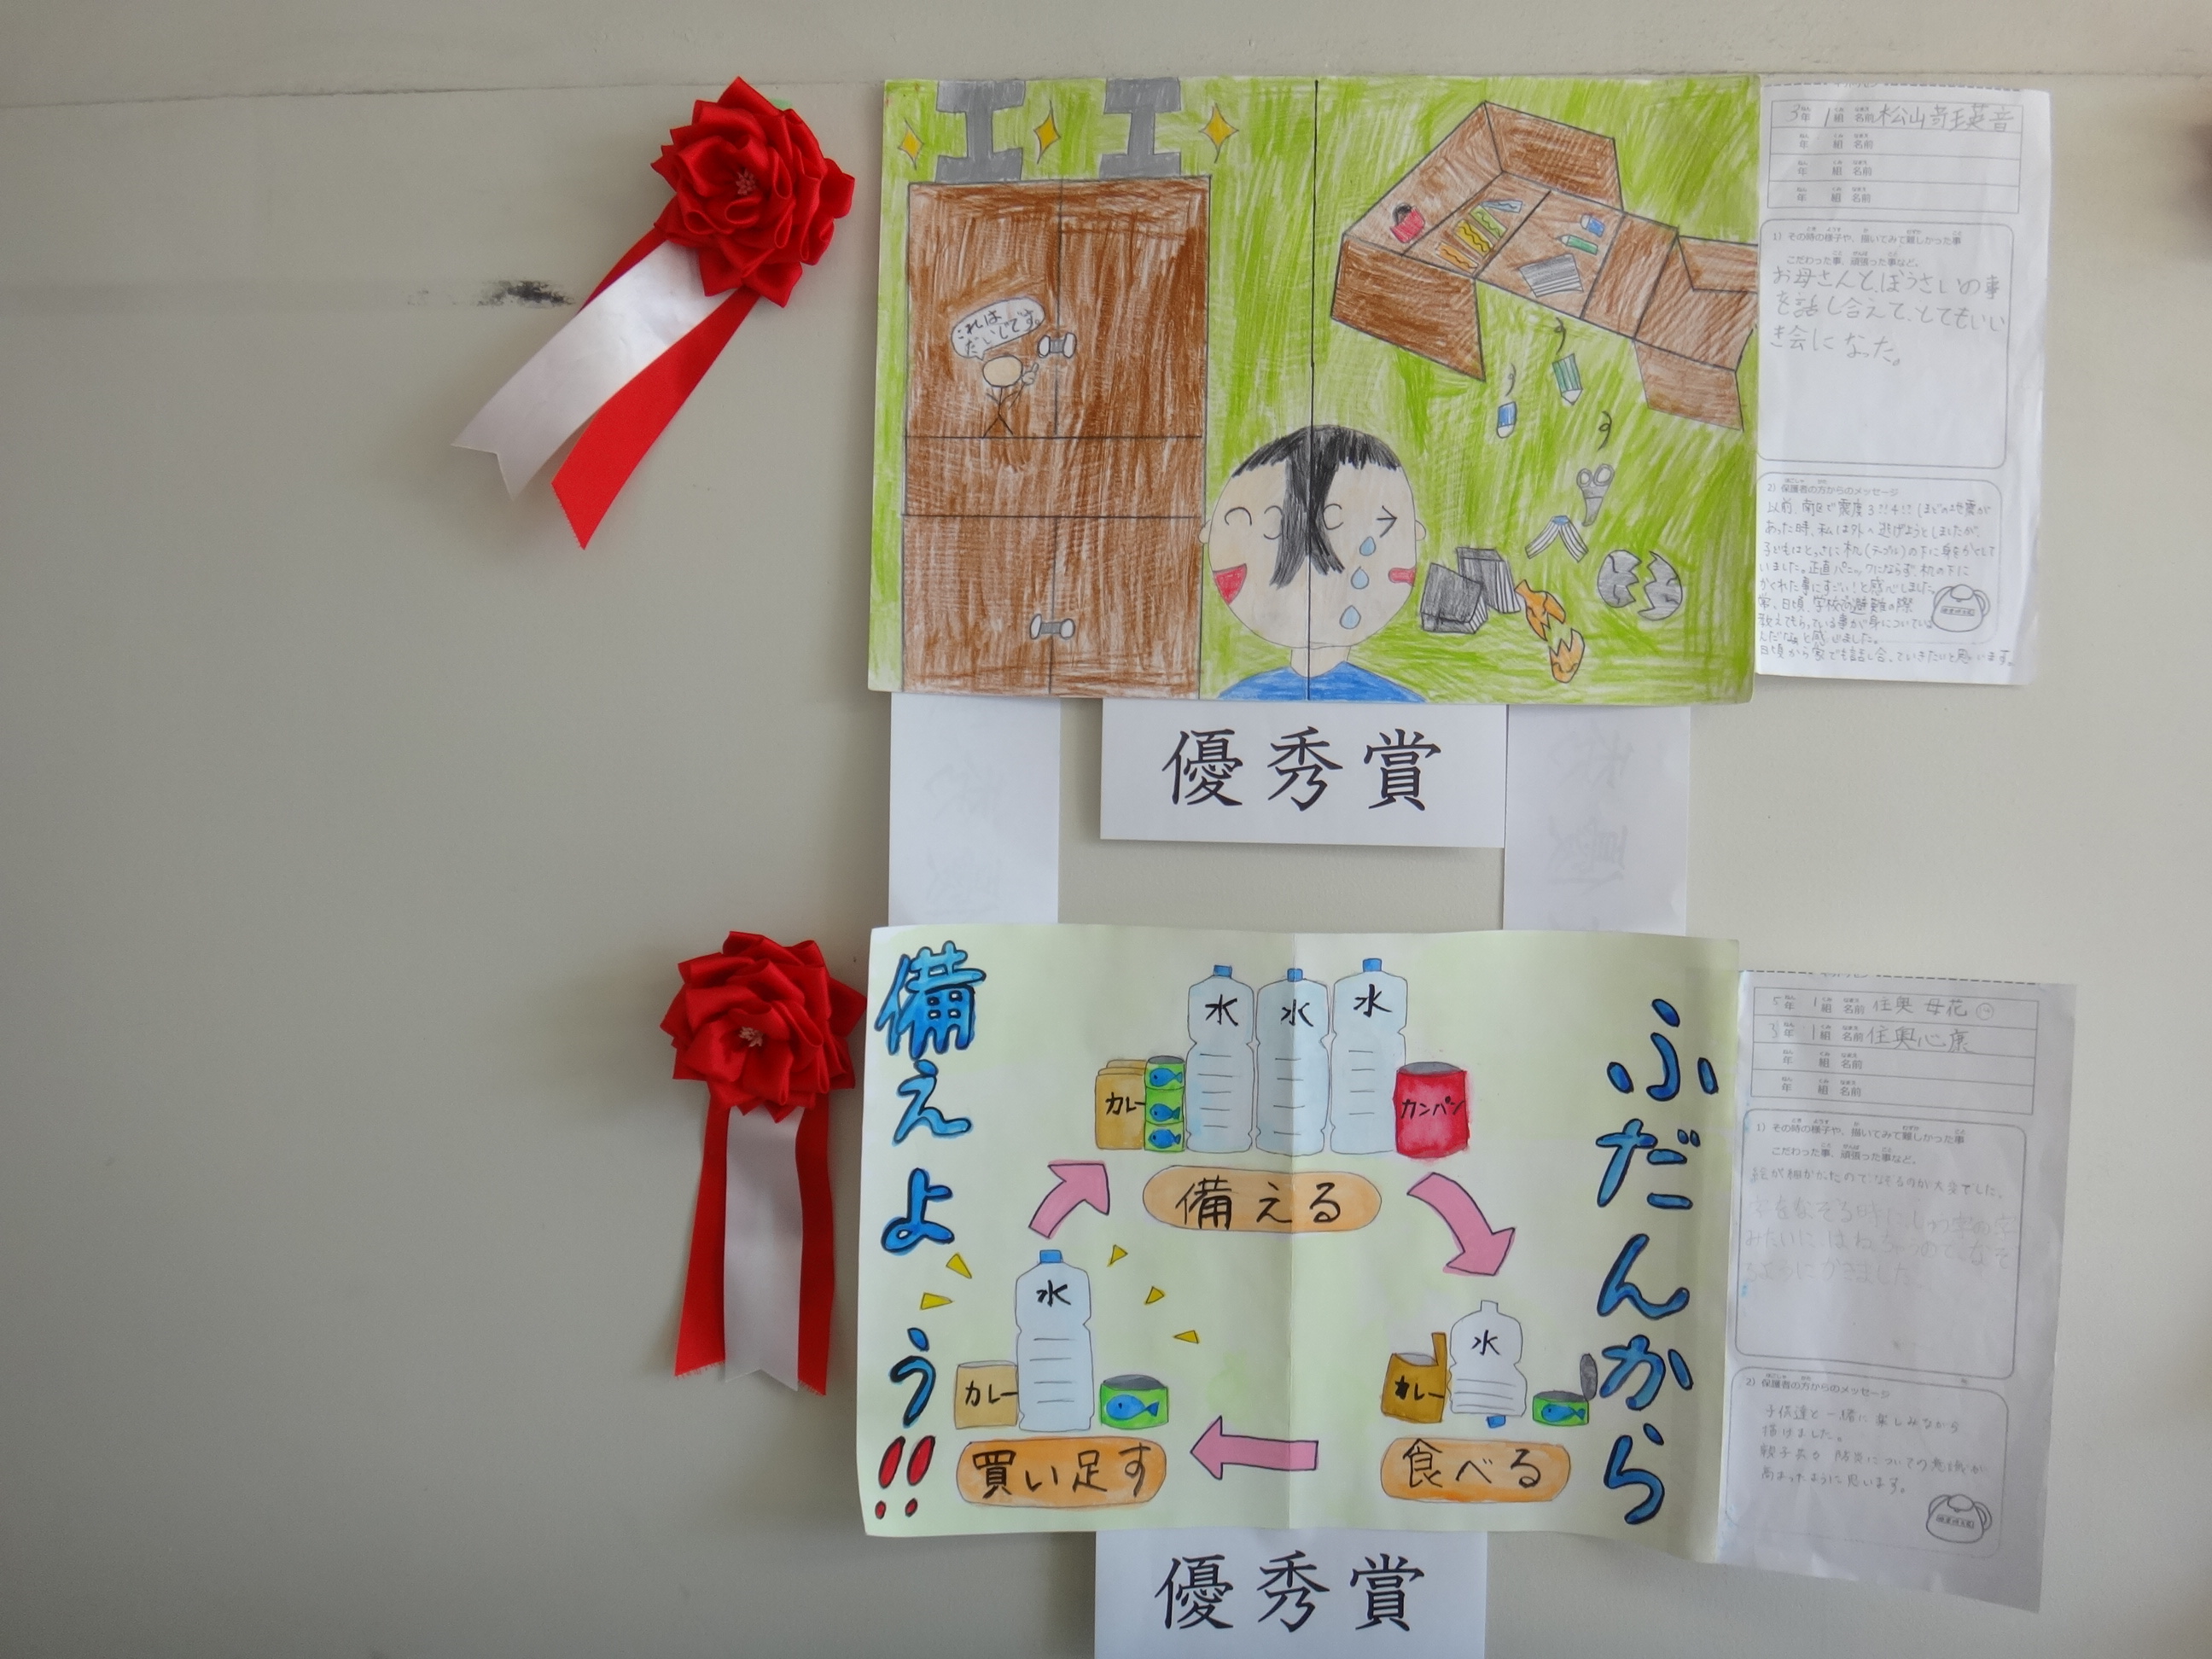 これは
だいじです。
3年 1組 名前 松山
年 組 名前
年 組 名前
年 組 名前
1) その時の様子や、描いてみて難しかった事
こだわった事、頑張った事など。
お母さんと、ぼうさいの事
を話し合えて、とてもいい
き会になった。
2) 保護者の方からのメッセージ
以前、南区で震度3!!4!!ほどの地震が
あった時、私は外へ逃げようとしましたが、
子どもはとっさに机(テーブル)の下に身をかくして
いました。正直パニックにならず、机の下に
かくれた事にすごい!と感心しました。
常、日頃、学校の避難の際
教えてもらっている事が身についている
んだなぁと感じました。
日頃から家でも話し合っていきたいと思います。
優秀賞
ふだんから
備えよう!!
水
水
水
カレー
カンパン
備える
水
カレー
食べる
水
カレー
買い足す
5年 1組 名前 住奥
3年 1組 名前 住奥心康
年 組 名前
年 組 名前
1) その時の様子や、描いてみて難しかった事
こだわった事、頑張った事など。
絵が細かかたのでなぞるのが大変でした。
字をなぞる時に、しゅう字の字
みたいに、はねちゃうので、なぞ
にかきました。
2) 保護者の方からのメッセージ
子供達と一緒に楽しみながら
描けました。
親子共々 防災についての意識が
高まったように思います。
優秀賞